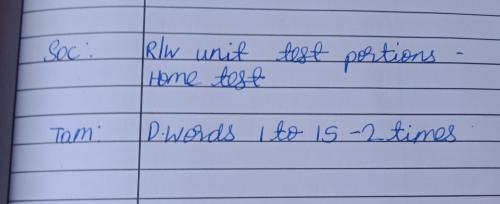 Soc: R/W unit test portions -
Home test
Tam: D.Words 1 to 15 -2 times